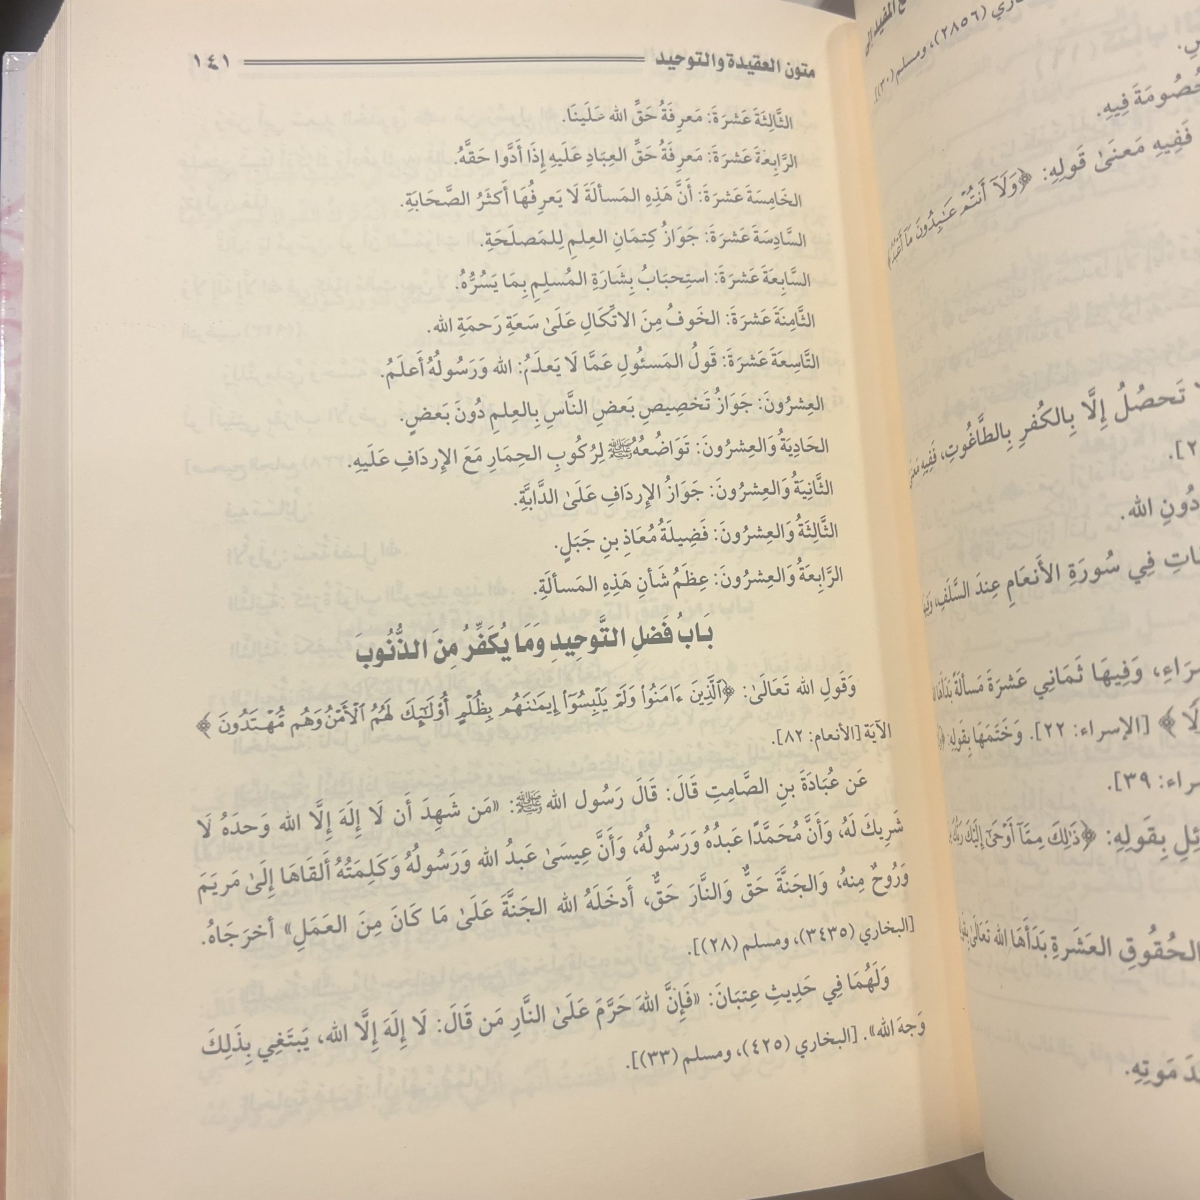 متون العقيدة والتوحيد ١٤١
الثَّالِثَةَ عَشرَةَ: مَعرِفَةُ حَقِّ الله عَلَينَا.
الرَّابِعَةَ عَشرَةَ: مَعرِفَةُ حَقِّ العِبَادِ عَلَيهِ إِذَا أَدَّوا حَقَّهُ.
الخَامِسَةَ عَشرَةَ: أَنَّ هَذِهِ المَسألَةَ لَا يَعرِفُهَا أَكثَرُ الصَّحَابَةِ.
السَّادِسَةَ عَشرَةَ: جَوَازُ كِتمَانِ العِلمِ لِلمَصلَحَةِ.
السَّابِعَةَ عَشرَةَ: استِحبَابُ بِشَارَةِ المُسلِمِ بِمَا يَسُرُّهُ.
الثَّامِنَةَ عَشرَةَ: الخَوفُ مِنَ الاتِّكَالِ عَلَىٰ سَعَةِ رَحمَةِ الله.
التَّاسِعَةَ عَشرَةَ: قَولُ المَسئُولِ عَمَّا لَا يَعلَمُ: الله وَرَسُولُهُ أَعلَمُ.
العِشرُونَ: جَوَازُ تَخصِيصِ بَعضِ النَّاسِ بِالعِلمِ دُونَ بَعضٍ.
الحَادِيَةُ وَالعِشرُونَ: تَوَاضُعُهُ ﷺ لِرُكُوبِ الحِمَارِ مَعَ الإِردَافِ عَلَيهِ.
الثَّانِيَةُ وَالعِشرُونَ: جَوَازُ الإِردَافِ عَلَىٰ الدَّابَّةِ.
الثَّالِثَةُ وَالعِشرُونَ: فَضِيلَةُ مُعَاذِ بنِ جَبَلٍ.
الرَّابِعَةُ وَالعِشرُونَ: عِظَمُ شَأنِ هَذِهِ المَسألَةِ.
بَابُ فَضلِ التَّوحِيدِ وَمَا يُكَفِّرُ مِنَ الذُّنُوبَ
وَقَولِ الله تَعَالَىٰ: ﴿ٱلَّذِينَ ءَامَنُواْ وَلَمْ يَلْبِسُوٓاْ إِيمَـٰنَهُم بِظُلْمٍ أُوْلَـٰٓئِكَ لَهُمُ ٱلْأَمْنُ وَهُم مُّهْتَدُونَ﴾
الآيَة [الأنعام: ٨٢].
عَن عُبَادَةَ بنِ الصَّامِتِ قَالَ: قَالَ رَسُول الله ﷺ: «مَن شَهِدَ أَن لَا إِلَهَ إِلَّا الله وَحدَهُ لَا
شَرِيكَ لَهُ، وَأَنَّ مُحَمَّدًا عَبدُهُ وَرَسُولُهُ، وَأَنَّ عِيسَىٰ عَبدُ الله وَرَسُولُهُ وَكَلِمَتُهُ أَلقَاهَا إِلَىٰ مَريَمَ
وَرُوحٌ مِنهُ، وَالجَنَّةَ حَقٌّ وَالنَّارَ حَقٌّ، أَدخَلَهُ الله الجَنَّةَ عَلَىٰ مَا كَانَ مِنَ العَمَلِ» أخرَجَاهُ.
[البخاري (٣٤٣٥)، ومسلم (٢٨)].
وَلَهُمَا فِي حَدِيثِ عِتبَانَ: «فَإِنَّ اللهَ حَرَّمَ عَلَىٰ النَّارِ مَن قَالَ: لَا إِلَهَ إِلَّا الله، يَبتَغِي بِذَلِكَ
وَجهَ الله». [البخاري (٤٢٥)، ومسلم (٣٣)].
(٢٨٥٦)، ومسلم (٣٠)].
فِيهِ.
فَفِيهِ مَعنَىٰ قَولِهِ: ﴿وَلَآ أَنتُمْ عَـٰبِدُونَ مَآ أَعْبُدُ﴾
تَحصُلُ إِلَّا بِالكُفرِ بِالطَّاغُوتِ، فَفِيهِ
دُونِ الله.
فِي سُورَةِ الأَنعَامِ عِندَ السَّلَفِ،
وَفِيهَا ثَمَانِي عَشرَةَ مَسألَةً
[الإسراء: ٢٢]. وَخَتَمَهَا بِقَولِهِ:
٣٩].
بِقَولِهِ: ﴿ذَٰلِكَ مِمَّآ أَوْحَىٰٓ إِلَيْكَ رَبُّكَ
الحُقُوقِ العَشَرَةِ بَدَأَهَا الله تَعَالَىٰ
مَوتِهِ.